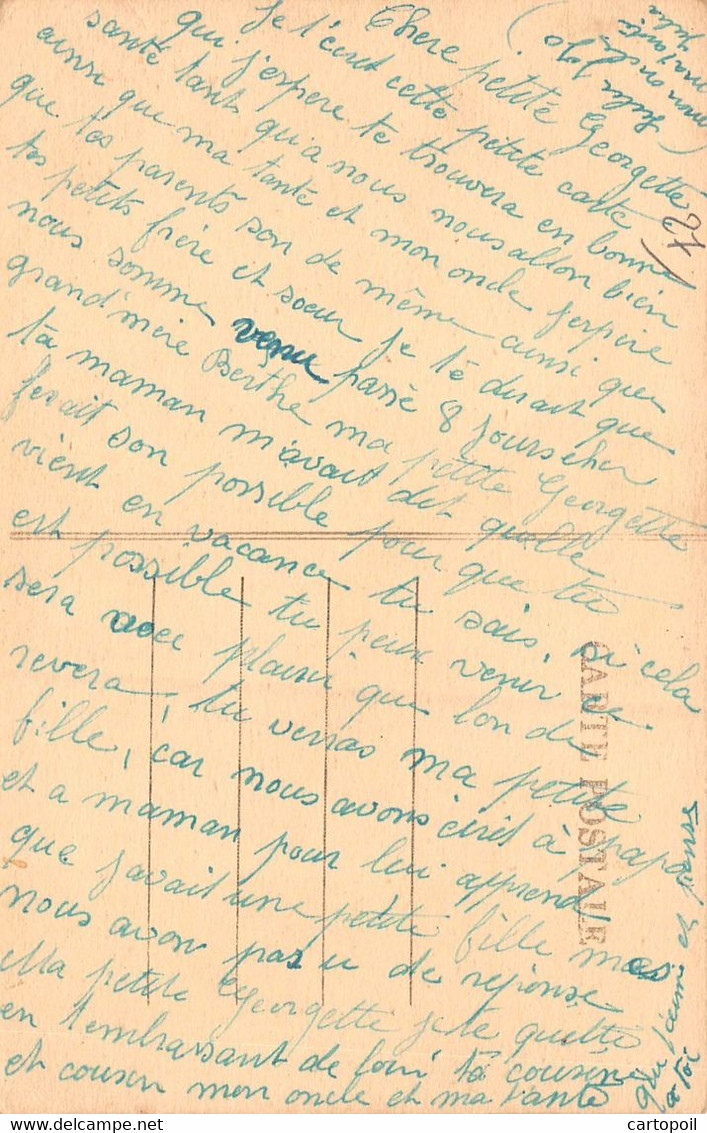 Chère petite Georgette
Je t'ecrit cette petite carte
qui j'espere te trouvera en bonne
santé tant qu'a nous nous allon bien
ainsi que ma tante et mon oncle j'espère
que tes parents son de même ainsi que
tes petits frère et soeur je te dirait que
nous somme venu passé 8 jours cher
grand'mère Berthe ma petite Georgette
ta maman m'avait dit quelle
ferait son possible pour que tu
vient en vacance tu sais, si cela
est possible tu peux venir ce
sera avec plaisir que l'on te
revera, tu verras ma petite
fille, car nous avons ecrit à papa
et a maman pour lui apprend
que j'avait une petite fille mais
nous avon pas u de réponse
Ma petite Georgette je te quitte
en t'embrassant de loin ta cousine
et cousin mon oncle et ma tante
qui t'aime et pense
a toi
CARTE POSTALE
cartopoil